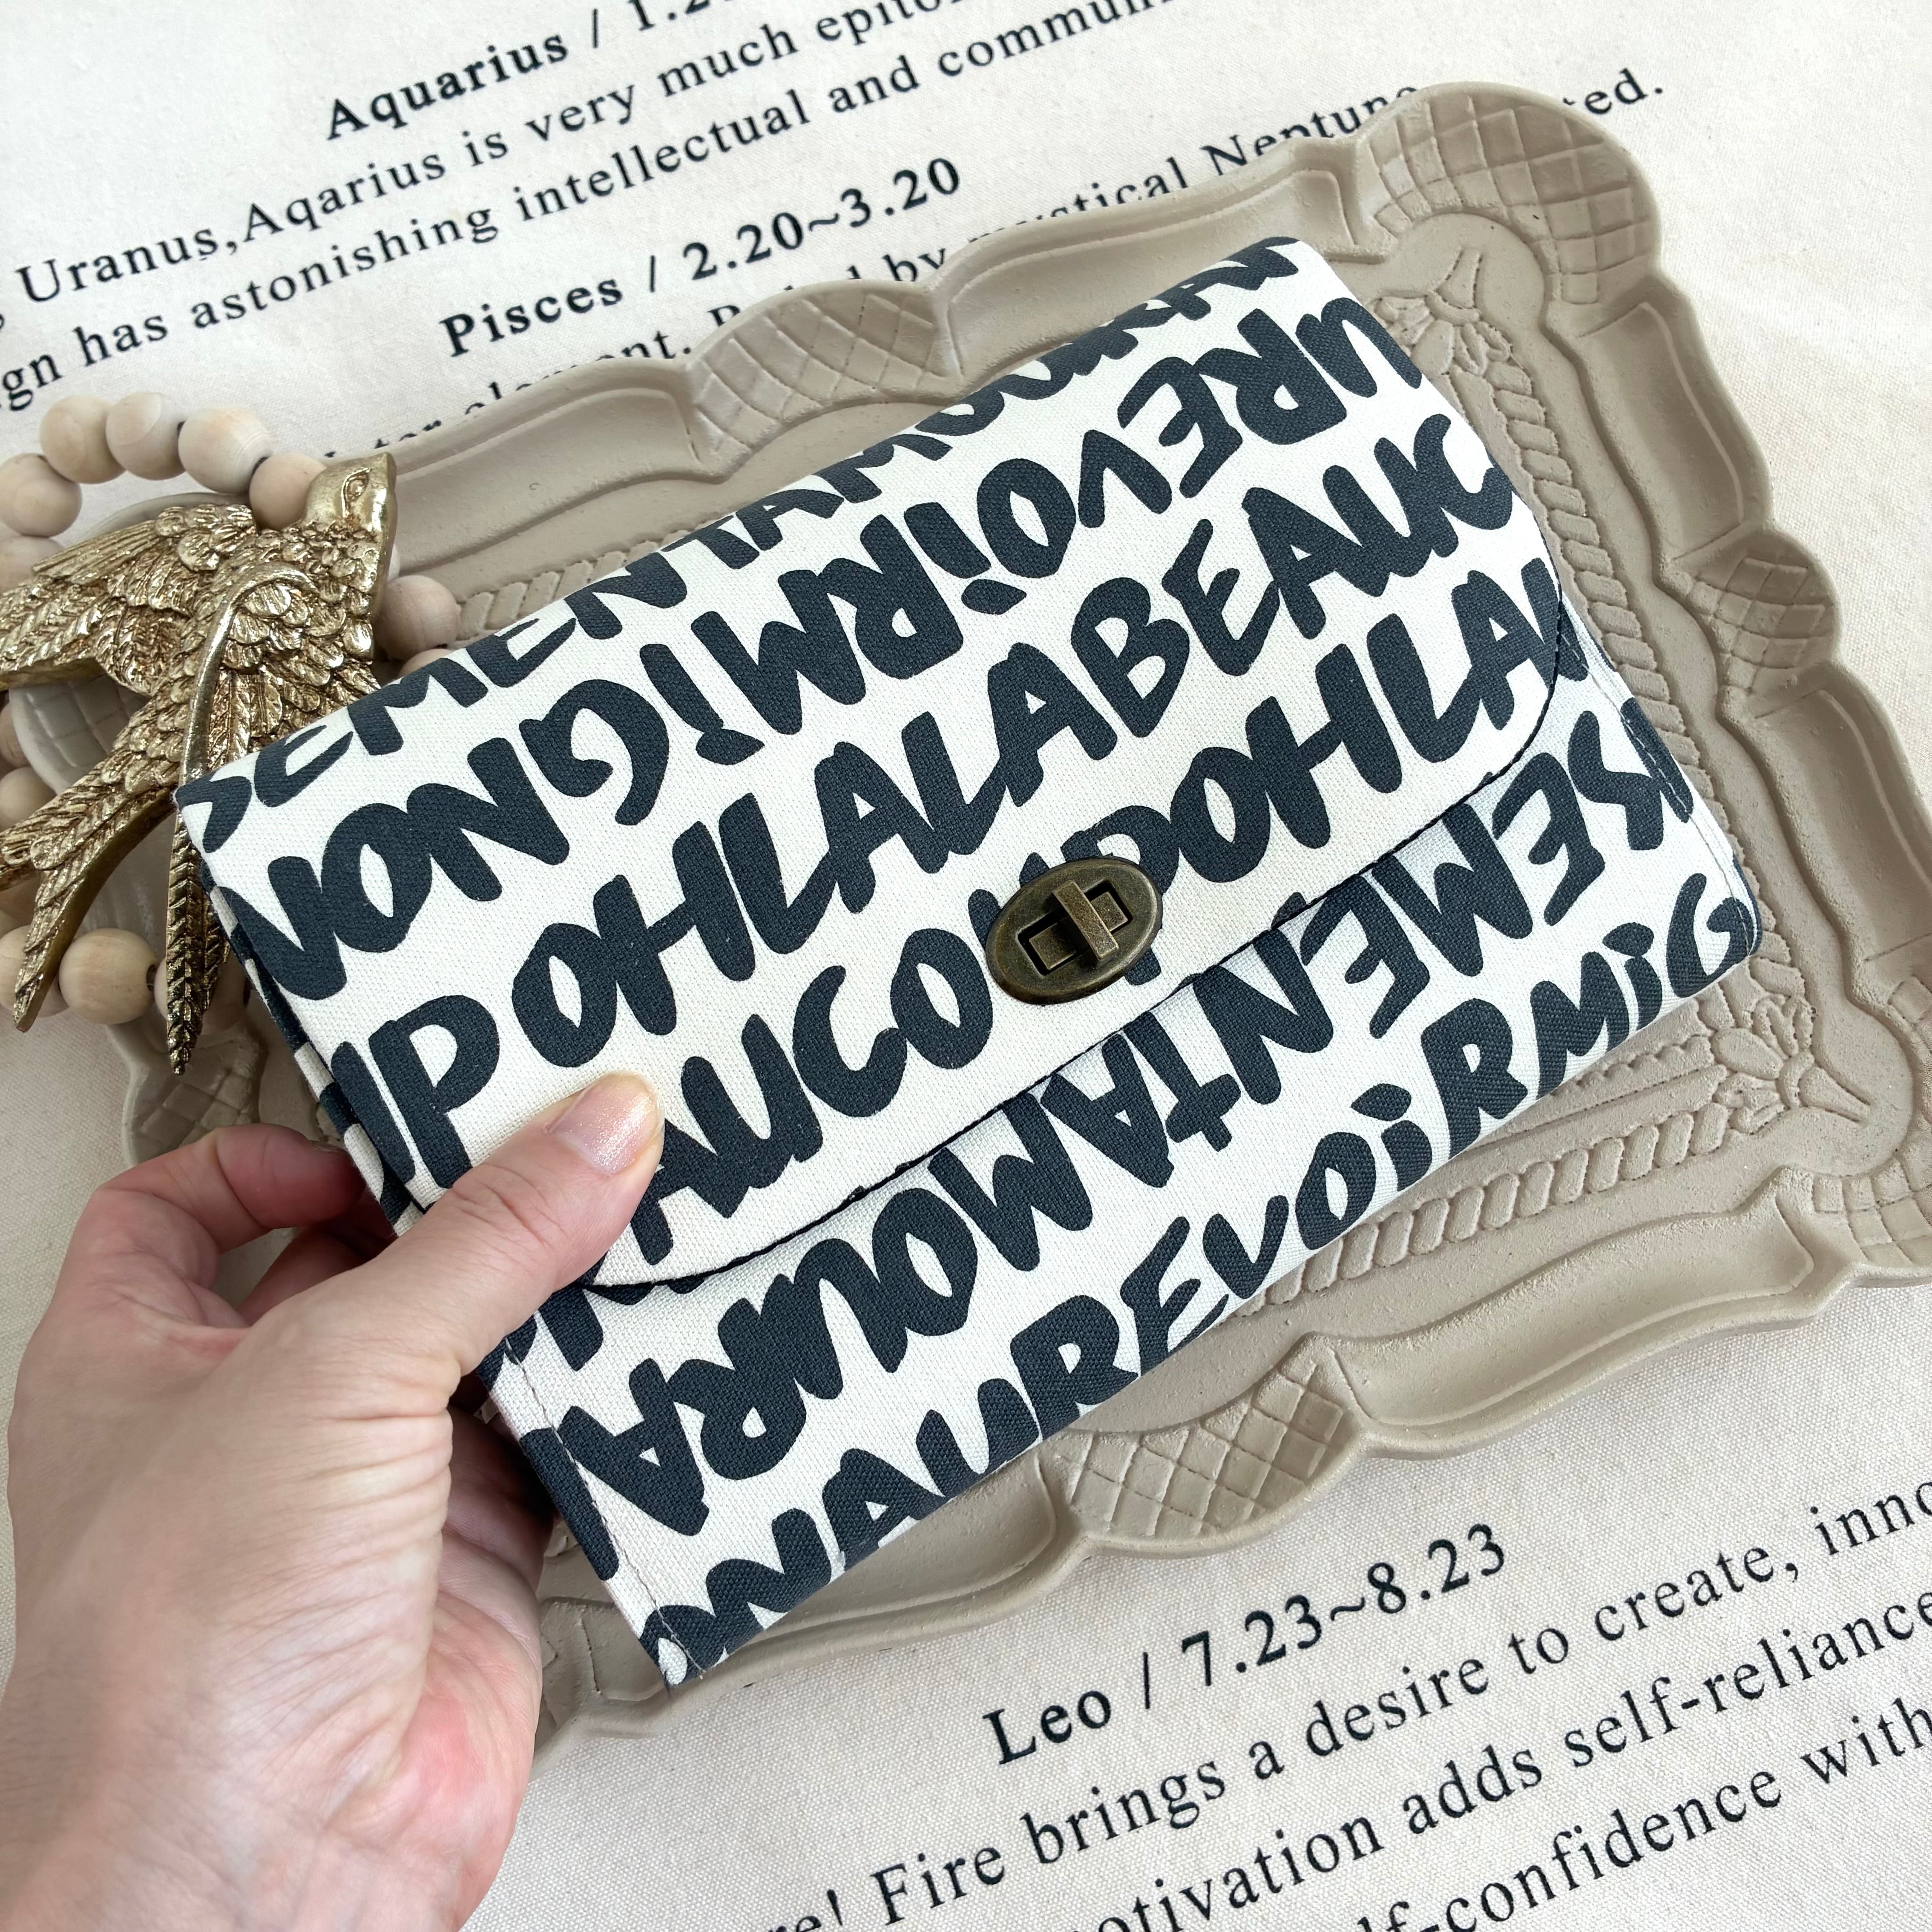 Aquarius / 1.2
Uranus,Aqarius is very much epito
gn has astonishing intellectual and commun
Pisces / 2.20~3.20
by mystical Neptune
ted.
SEMENTAMOURAU
NONGIRMIOVERU
UPOHLALABEAUC
AUCOUPOHLALA
SEMENTAMOURA
ONAUREVOIRMIG
Leo / 7.23~8.23
re! Fire brings a desire to create, inno
otivation adds self-reliance
lf-confidence with